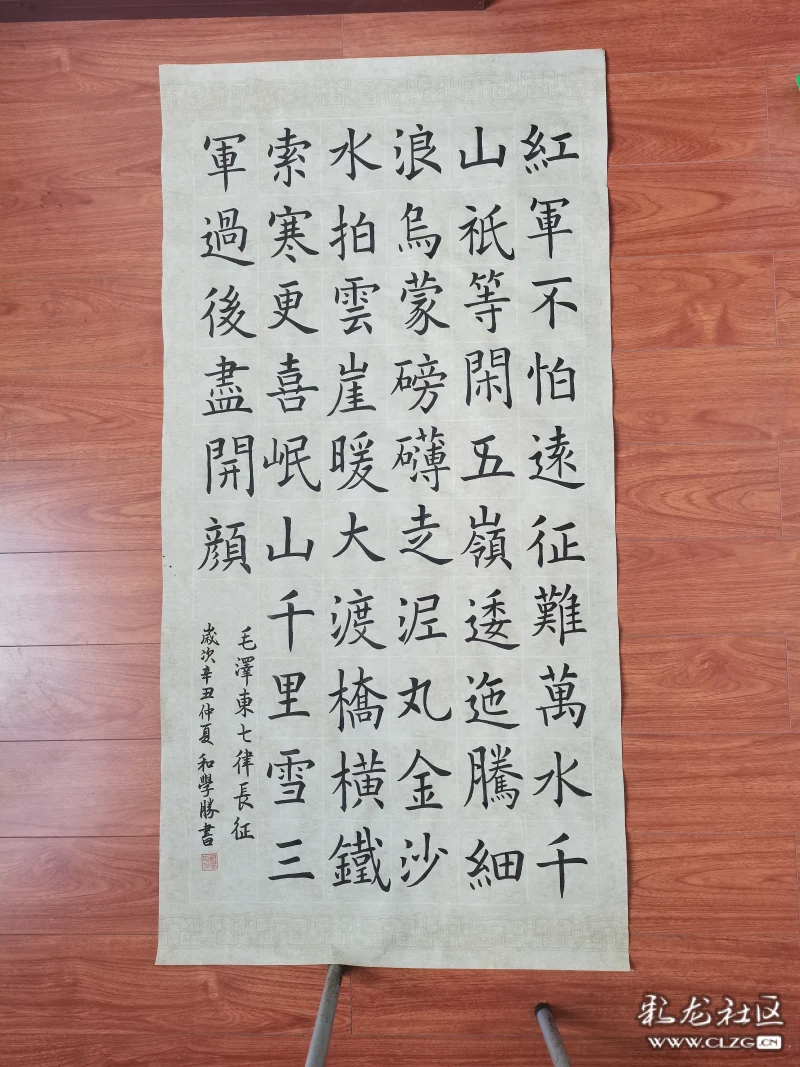 紅軍不怕遠征難萬水千
山祇等閑五嶺逶迤騰細
浪烏蒙磅礴走泥丸金沙
水拍雲崖暖大渡橋橫鐵
索寒更喜岷山千里雪三
軍過後盡開顏
毛澤東七律長征
歲次辛丑仲夏和學勝書
彩龙社区
WWW.CLZG.CN